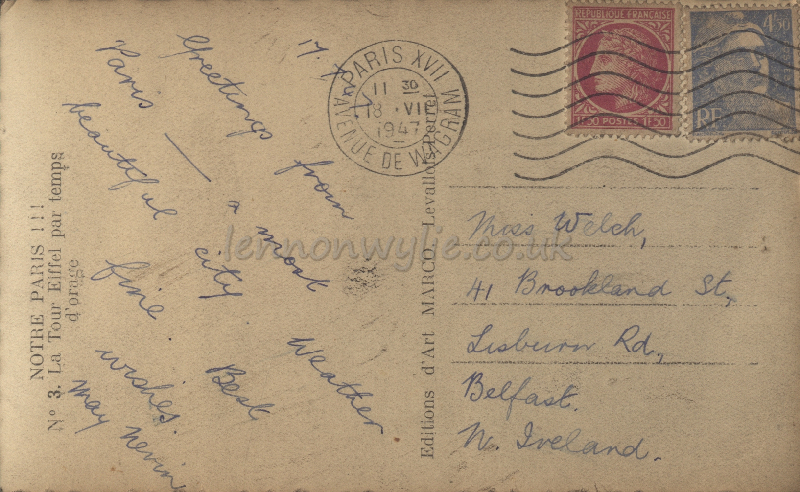 NOTRE PARIS !!!
N° 3. La Tour Eiffel par temps
d'orage
Greetings from
Paris — a most
beautiful city. Weather
fine. Best
wishes.
May Nevin
Editions d'Art MARCO, Levallois-Perret
PARIS XVII
11 30
18 VII
1947
AVENUE DE WAGRAM
REPUBLIQUE FRANÇAISE
1F50 POSTES 1F50
4F50
RF
Miss Welch,
41 Brookland St.,
Lisburn Rd.,
Belfast.
N. Ireland.
lennonwylie.co.uk